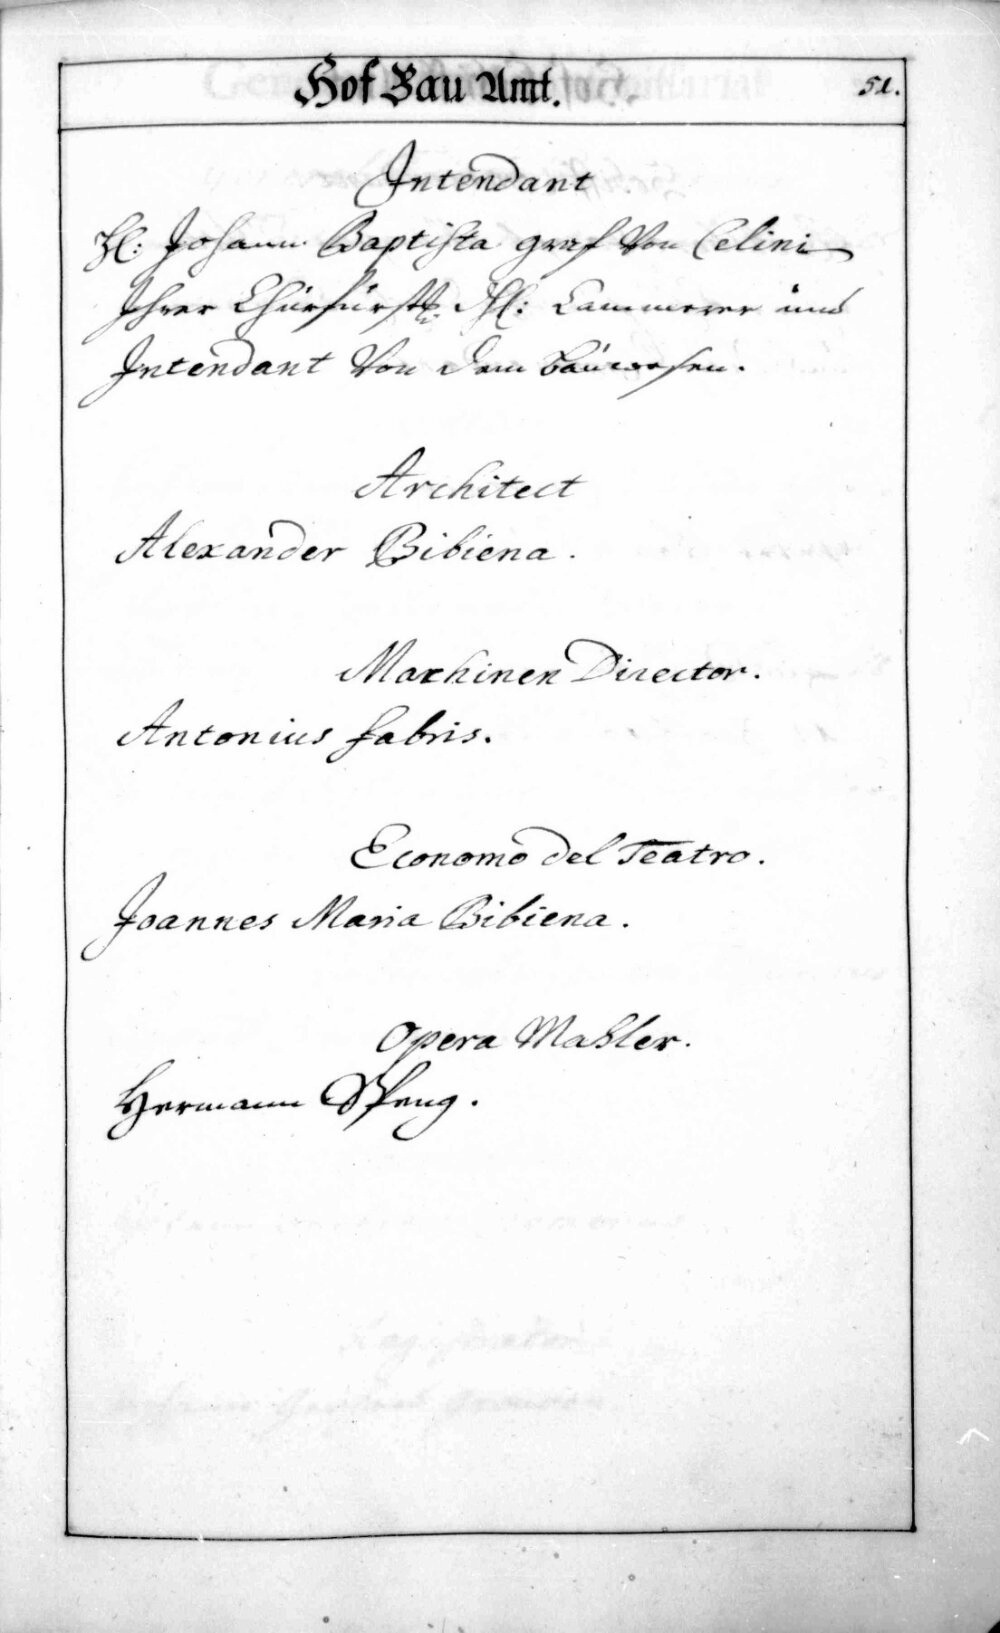 Hof Bau Amt. 51.
Intendant
H: Johann Baptista graf Von Celini
Ihrer Chürfürstl: Dhl: Cammerer und
Intendant Von dem Bauwesen.
Architect
Alexander Bibiena.
Machinen Director.
Antonius fabris.
Economo del Teatro.
Joannes Maria Bibiena.
Opera Mahler.
Hermann Speng.